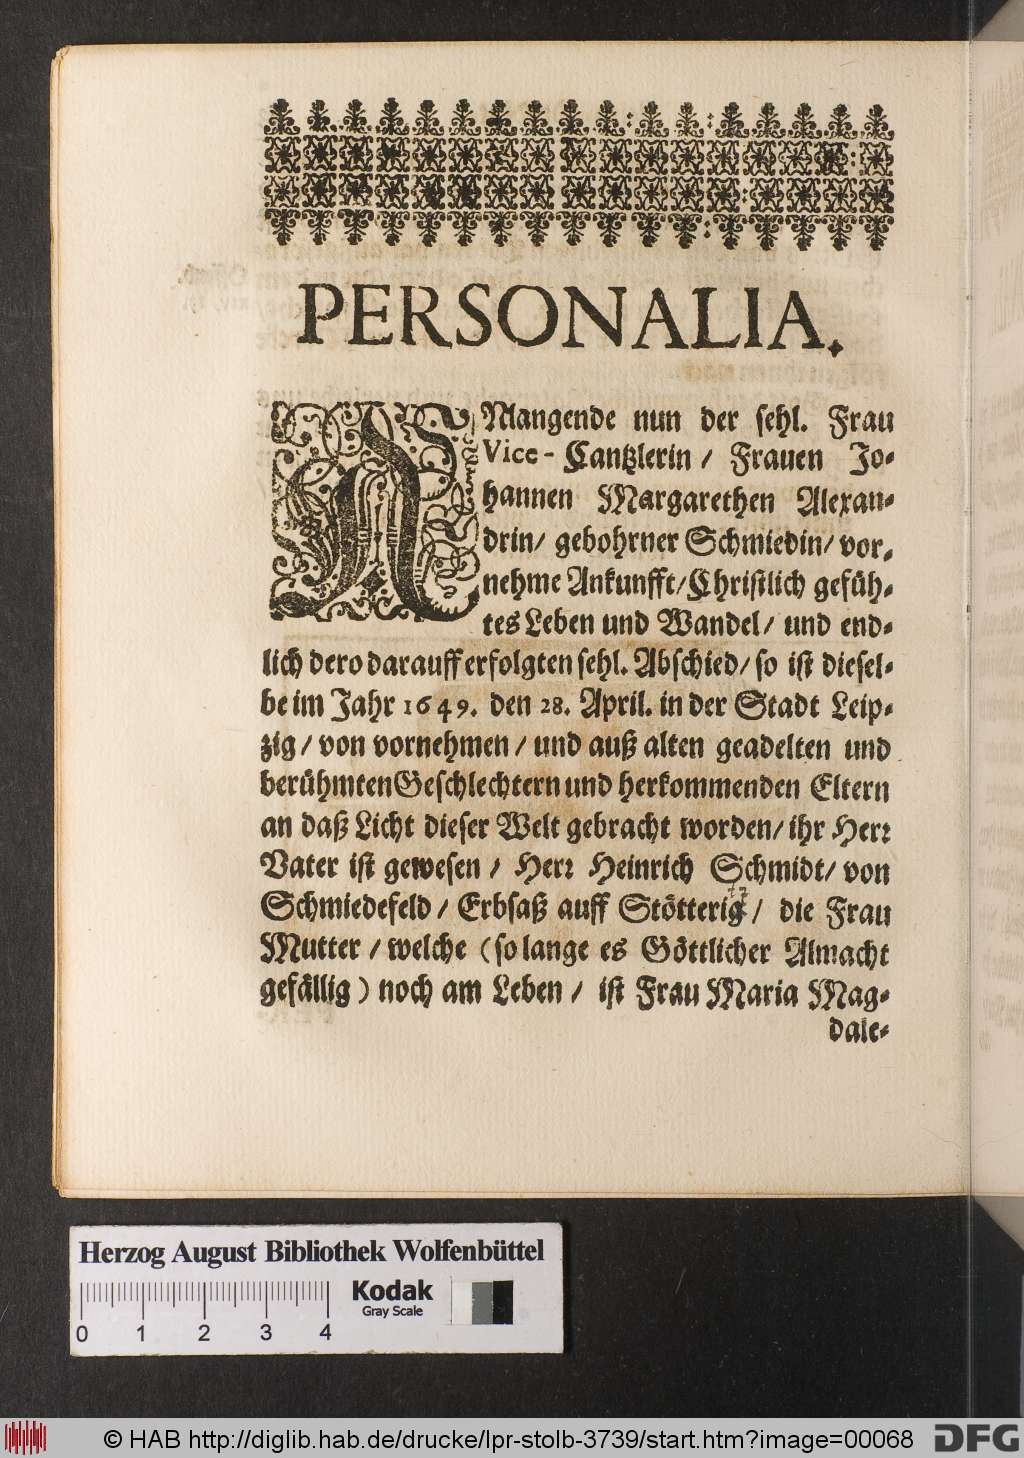 PERSONALIA.
ANlangende nun der sehl. Frau
Vice-Cantzlerin / Frauen Jo-
hannen Margarethen Alexan-
drin/ gebohrner Schmiedin/ vor-
nehme Ankunfft/Christlich gefüh-
tes Leben und Wandel/ und end-
lich dero darauff erfolgten sehl. Abschied/ so ist diesel-
be im Jahr 1649. den 28. April. in der Stadt Leip-
zig / von vornehmen / und auß alten geadelten und
berühmten Geschlechtern und herkommenden Eltern
an daß Licht dieser Welt gebracht worden/ ihr Herr
Vater ist gewesen / Herr Heinrich Schmidt/ von
Schmiedefeld/ Erbsaß auff Stötterig/ die Frau
Mutter / welche (so lange es Göttlicher Almacht
gefällig) noch am Leben / ist Frau Maria Mag-
dale-
Herzog August Bibliothek Wolfenbüttel
Kodak
Gray Scale
0 1 2 3 4
© HAB http://diglib.hab.de/drucke/lpr-stolb-3739/start.htm?image=00068
DFG